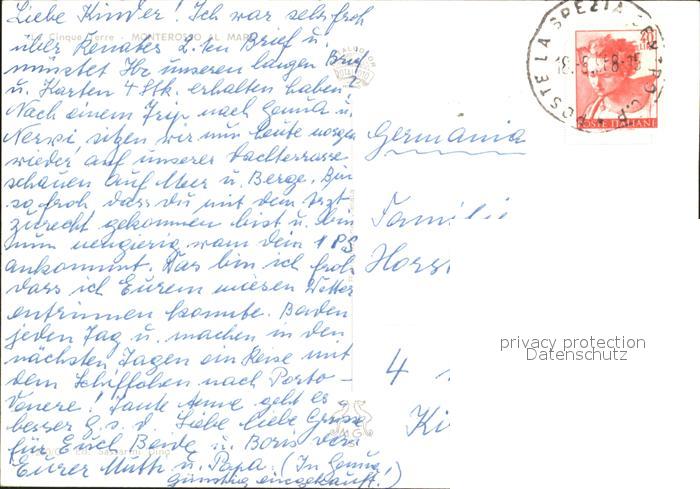 Liebe Kinder! Ich war sehr froh
Le Cinque Terre - MONTEROSSO AL MARE
über Renates 2.ten Brief u.
müsstet Ihr unseren langen Brief
u. Karten 4 Stk. erhalten haben?
Nach einem Trip nach Genua u.
Nervi, sitzen wir nun heute morgen
wieder auf unserer Dachterrasse
schauen auf Meer u. Berge. Bin
so froh dass Du mit dem Arzt
zurecht gekommen bist u. bin
nun neugierig wann dein 1 PS
ankommt. Was bin ich froh
dass ich Eurem miesen Wetter
entrinnen konnte. Baden
jeden Tag u. machen in den
nächsten Tagen ein Reise mit
dem Schiffchen nach Porto-
Venere! Tante Anne geht es
besser G. s. d. Liebe liebe Grüsse
für Euch Beide u. Boris von
Eurer Mutti u. Papa. (In Genua
günstig eingekauft!)
Germania
Familie
Horst
4
Ki
POSTE LA SPEZIA CENTRO C.P.
18.-6. 8-15
40
POSTE ITALIANE
privacy protection
Datenschutz